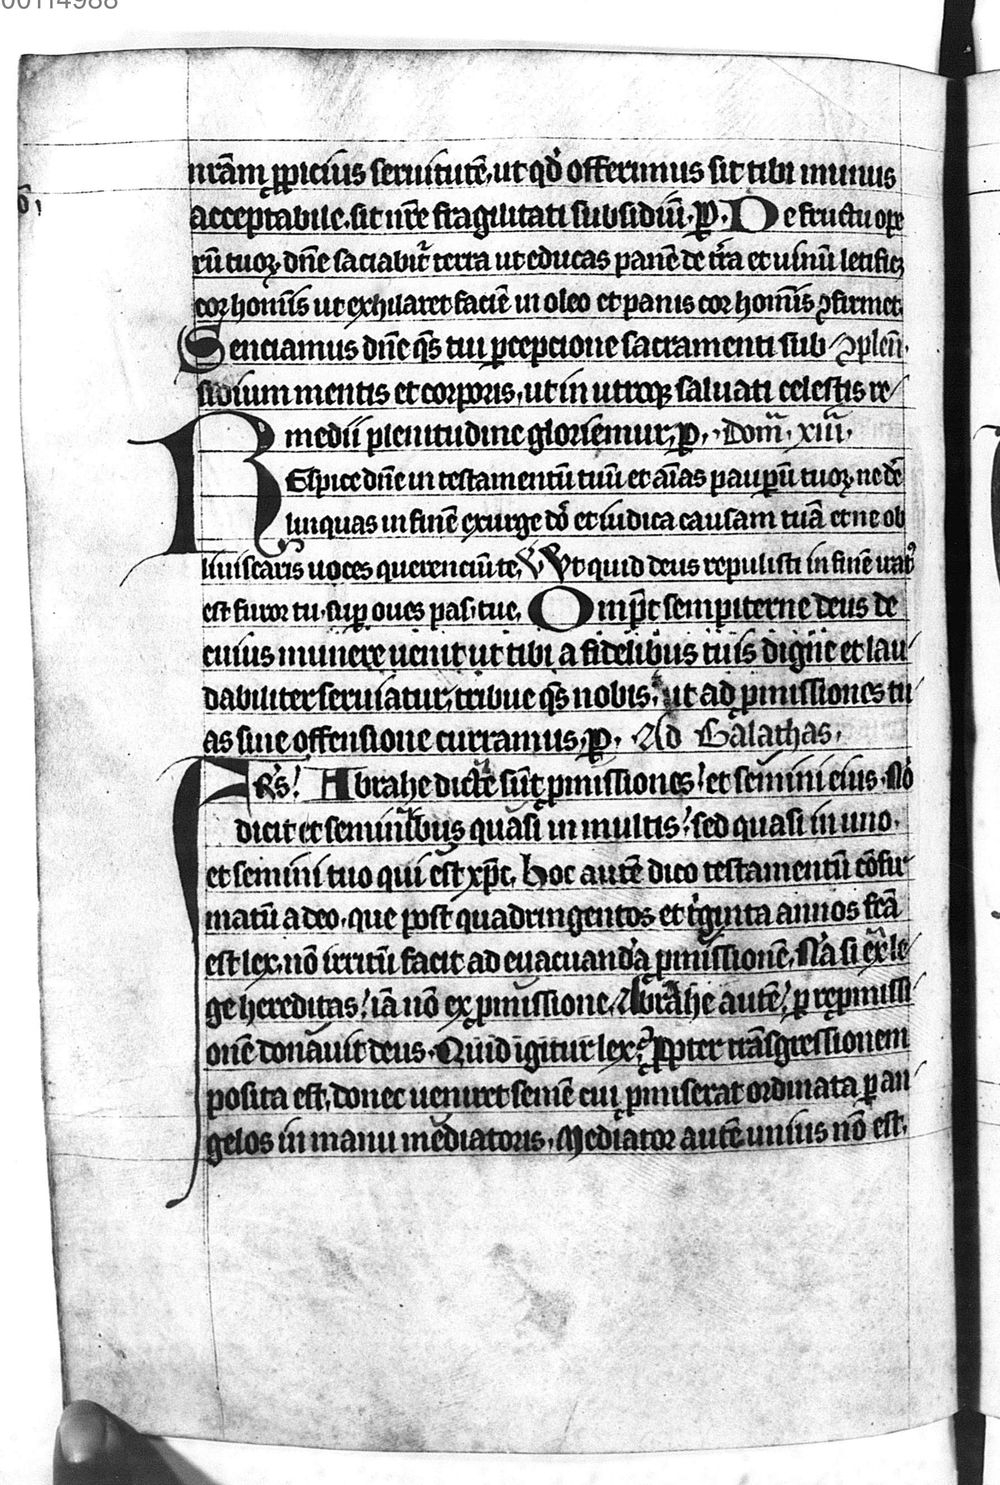 00114988
nr̄am ꝓpicius seruitutē. ut qd̓ offerimus sit tibi munus
acceptabile. sit nr̄e fragilitati subsidiū. ꝑ. De fructu oꝑe
rū tuoꝝ dn̄e saciabit᷑ terra ut educas panē de t̓ra et uinū letificꝫ
cor hom̄is ut exhilaret faciē in oleo et panis cor hom̄is ꝯfirmet.
Senciamus dn̄e q̄s tui ꝑcepcione sacramenti sub ꝯplen̄.
sidium mentis et corporis, ut in utroqꝫ saluati celestis re
medii plenitudine gloriemur, ꝑ. Dom̄. xiii.
REspice dn̄e in testamentū tuū et aīas pauꝑū tuoꝝ ne de
linquas in finē exurge dō et iudica causam tuā et ne ob
liuiscaris uoces querenciū te. Vt quid deus repulisti in finē irat᷒
est furor tu. suꝑ oues pas. tue. Omp̄c sempiterne deus de
cuius munere uenit ut tibi a fidelibus tuis digne et lau
dabiliter seruiatur, tribue q̄s nobis, ut ad ꝓmissiones tu
as sine offensione curramus, ꝑ. Ad Galathas.
Frs̄! Abrahe dicte sūt ꝓmissiones! et semini eius. Nō
dicit et seminibus quasi in multis! sed quasi in uno.
et semini tuo qui est xp̄c. Hoc autē dico testamentū cōfir
matū a deo. que post quadringentos et t̓ginta annos fc̄a
est lex. nō irritū facit ad euacuandā ꝓmissionē. Nā si ex le
ge hereditas! iā nō ex ꝓmissione. Abrahe autē! ꝑ reꝓmissi
onē donauit deus. Quid igitur lex? ꝓpter trāsgressionem
posita est, donec ueniret semē cui ꝓmiserat ordinata ꝑ an
gelos in manu mediatoris. Mediator autē unius nō est.